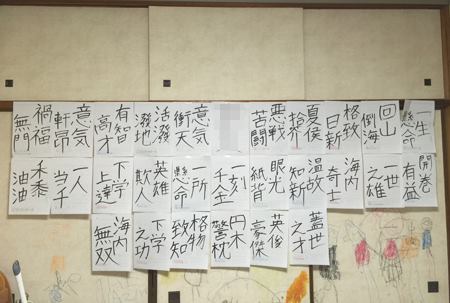 一生
懸命
回山
倒海
格致
日新
夏侯
拾芥
悪戦
苦闘
意気
衝天
活溌
溌地
有智
高才
意気
軒昂
禍福
無門
開巻
有益
一世
之雄
海内
奇士
温故
知新
眼光
紙背
一刻
千金
一所
懸命
英雄
欺人
下学
上達
一人
当千
禾黍
油油
蓋世
之才
英俊
豪傑
円木
警枕
格物
致知
下学
之功
海内
無双